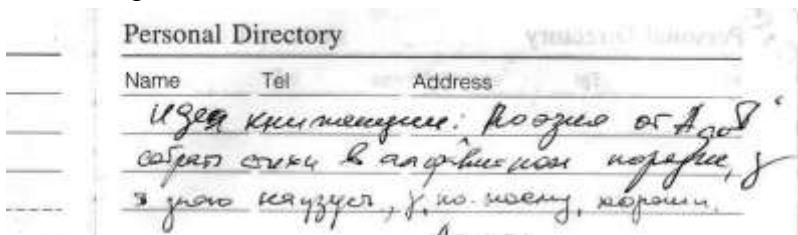 Personal Directory
Name Tel Address
Идея книженции: Поэзия от А до
собрать стихи в алфавитном порядке,
знаю наизусть, по-моему, хороши.